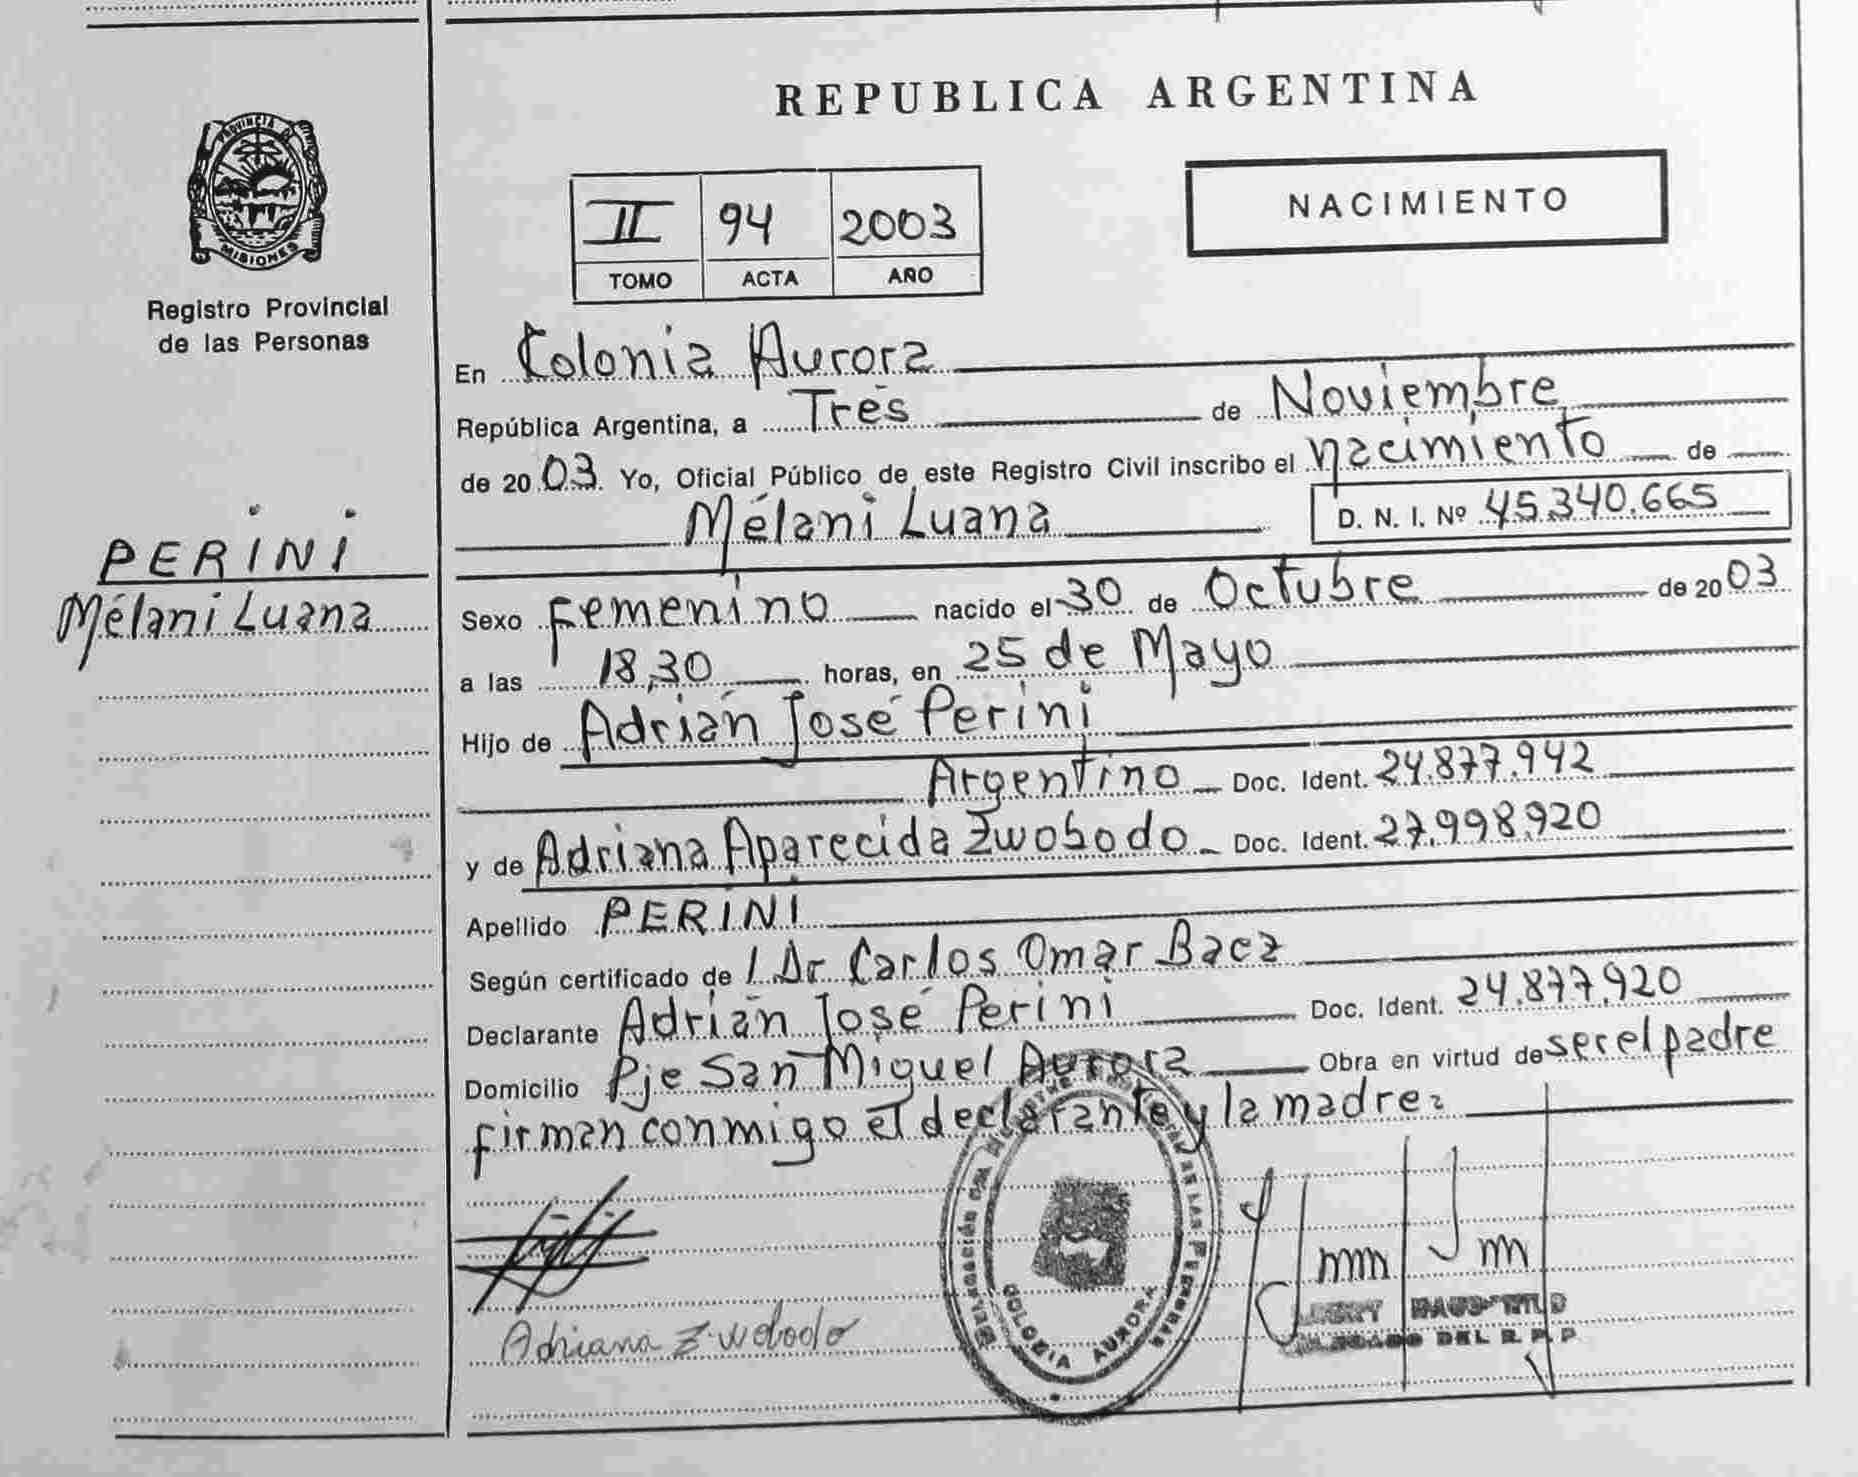 REPUBLICA ARGENTINA
PROVINCIA DE
MISIONES
Registro Provincial
de las Personas
II 94 2003
TOMO ACTA AÑO
NACIMIENTO
En Colonia Aurora
República Argentina, a Tres de Noviembre
de 2003. Yo, Oficial Público de este Registro Civil inscribo el nacimiento de
Mélani Luana D. N. I. Nº 45.340.665
PERINI
Mélani Luana
Sexo Femenino nacido el 30 de Octubre de 2003
a las 18,30 horas, en 25 de Mayo
Hijo de Adrián José Perini
Argentino Doc. Ident. 24.877.942
y de Adriana Aparecida Zwobodo Doc. Ident. 27.998.920
Apellido PERINI
Según certificado de Dr Carlos Omar Baez
Declarante Adrián José Perini Doc. Ident. 24.877.920
Domicilio Pje San Miguel Aurora Obra en virtud de ser el padre
firman conmigo el declarante y la madre
Adriana Zwobodo
DE LAS PERSONAS
COLONIA AURORA
DEL R. P. P.